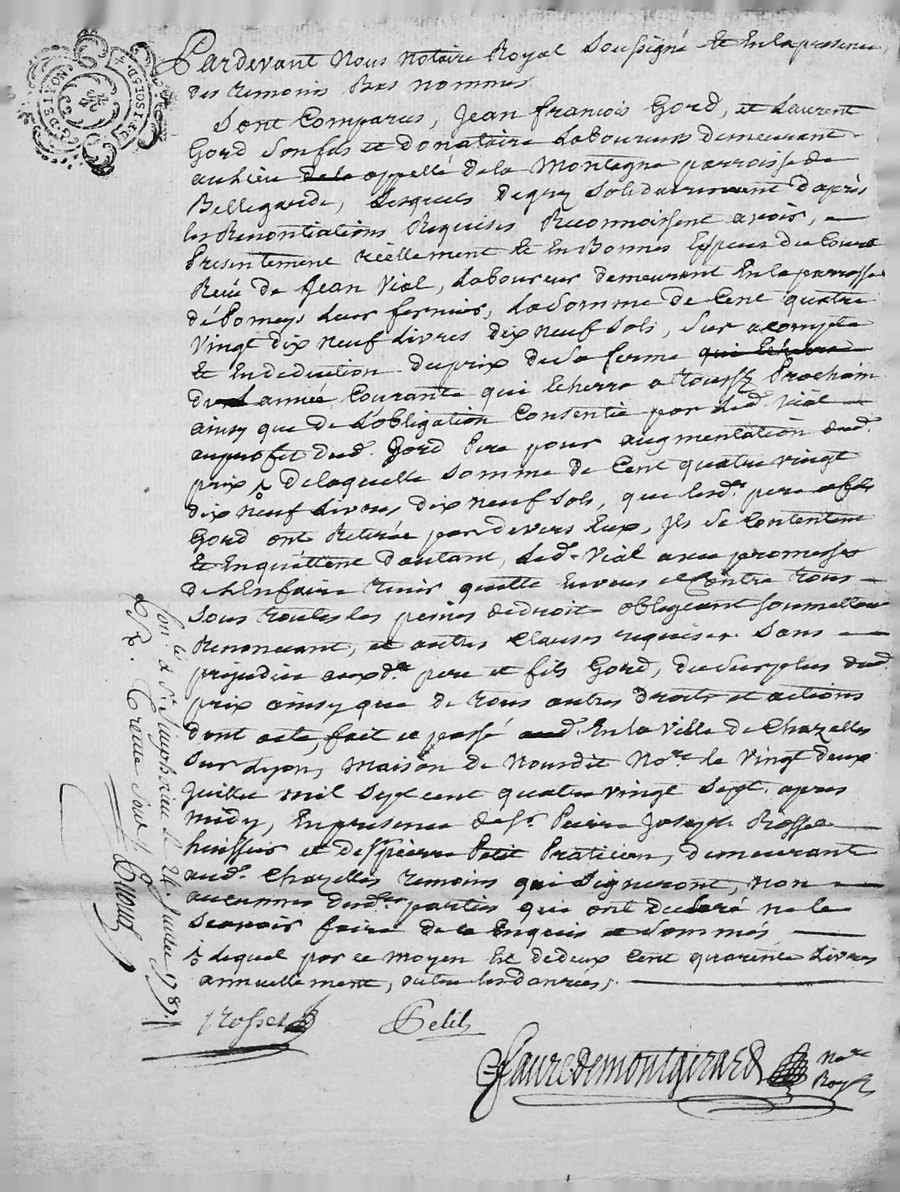 Pardevant Nous Notaire Royal Soussigné Et En la presence
des temoins Bas nommes
Sont Comparus, Jean françois Gord, et Laurent
Gord Son fils et donataire Laboureurs demeurant
au Lieu appellé de la Montagne parroisse de
Bellegarde, Lesquels de gré Solidairement d'après
les Renontiations Requises Reconnoissent avoir, —
Presentement réellement Et En Bonnes Espèces du Cours
Reçu de Jean Vial, Laboureur demeurant En la parroisse
de Pomeys Leur fermier, La Somme de Cent quatre
Vingt dix neuf Livres dix neuf Sols, Sur a compte
Et En deduction du prix de Sa ferme qui Echerra
de L année Courante qui Echerra a touss.t Prochain
ainsy que de L'obligation Consentie par Led. Vial —
au profit dud. Gord Pere pour augmentation dud.
prix ⁊ de laquelle Somme de Cent quatre vingt
dix neuf Livres dix neuf Sols, que lesd. pere et fils
Gord ont Retirée par devers Eux, ils Se Contentent
Et En quittent d'autant, Led. Vial avec promesses
de L'En faire tenir quitte Envers et Contre tous —
Sous toutes les peines de droit obligeant Soumettant
Renonceant, et autres Clauses requises Sans —
prejudice auxd. pere et fils Gord, du Surplus dud.
prix ainsy que de tous autres droits et actions
dont acte, fait et passé En la Ville de Chazelles
Sur Lyon, Maison de Nousdit No.re le Vingt deux
Juillet mil Sept cent quatre vingt Sept. après
midy, En presence de S.r Pierre Joseph Rosset —
huissier et de S. pierre Petit Praticien, demeurant
aud. Chazelles temoins qui Signeront, non —
aucunes desd. parties qui ont declaré ne le
Scavoir faire de ce Enquis et Sommés —
⁊ lequel par ce moyen Est de deux Cent quarente Livres
annuellement, outre les danrées, —
Rosset
Petit
Faure de montgirard No.re Roy.l
Con.lé à S.t Simphorien le 24 Juillet 1787.
R. trente Sous